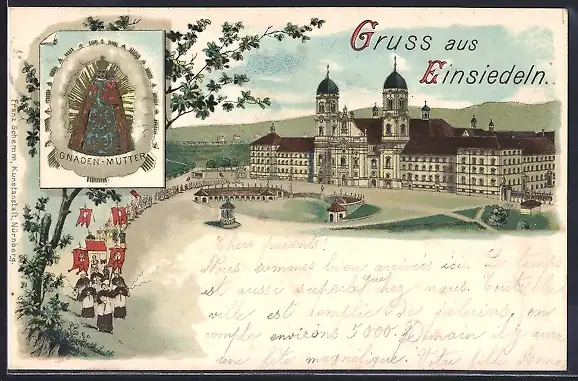 Gruss aus
Einsiedeln.
GNADEN-MUTTER
Franz Schemm, Kunstanstalt, Nürnberg.
Chers parents!
Nous sommes bien arrivés ici. Le temps
est aussi superbe chez nous. Toute la
ville est remplie de pélerins, on
compte environs 5000. Demain il y aura
une fête magnifique. Votre fille Anna